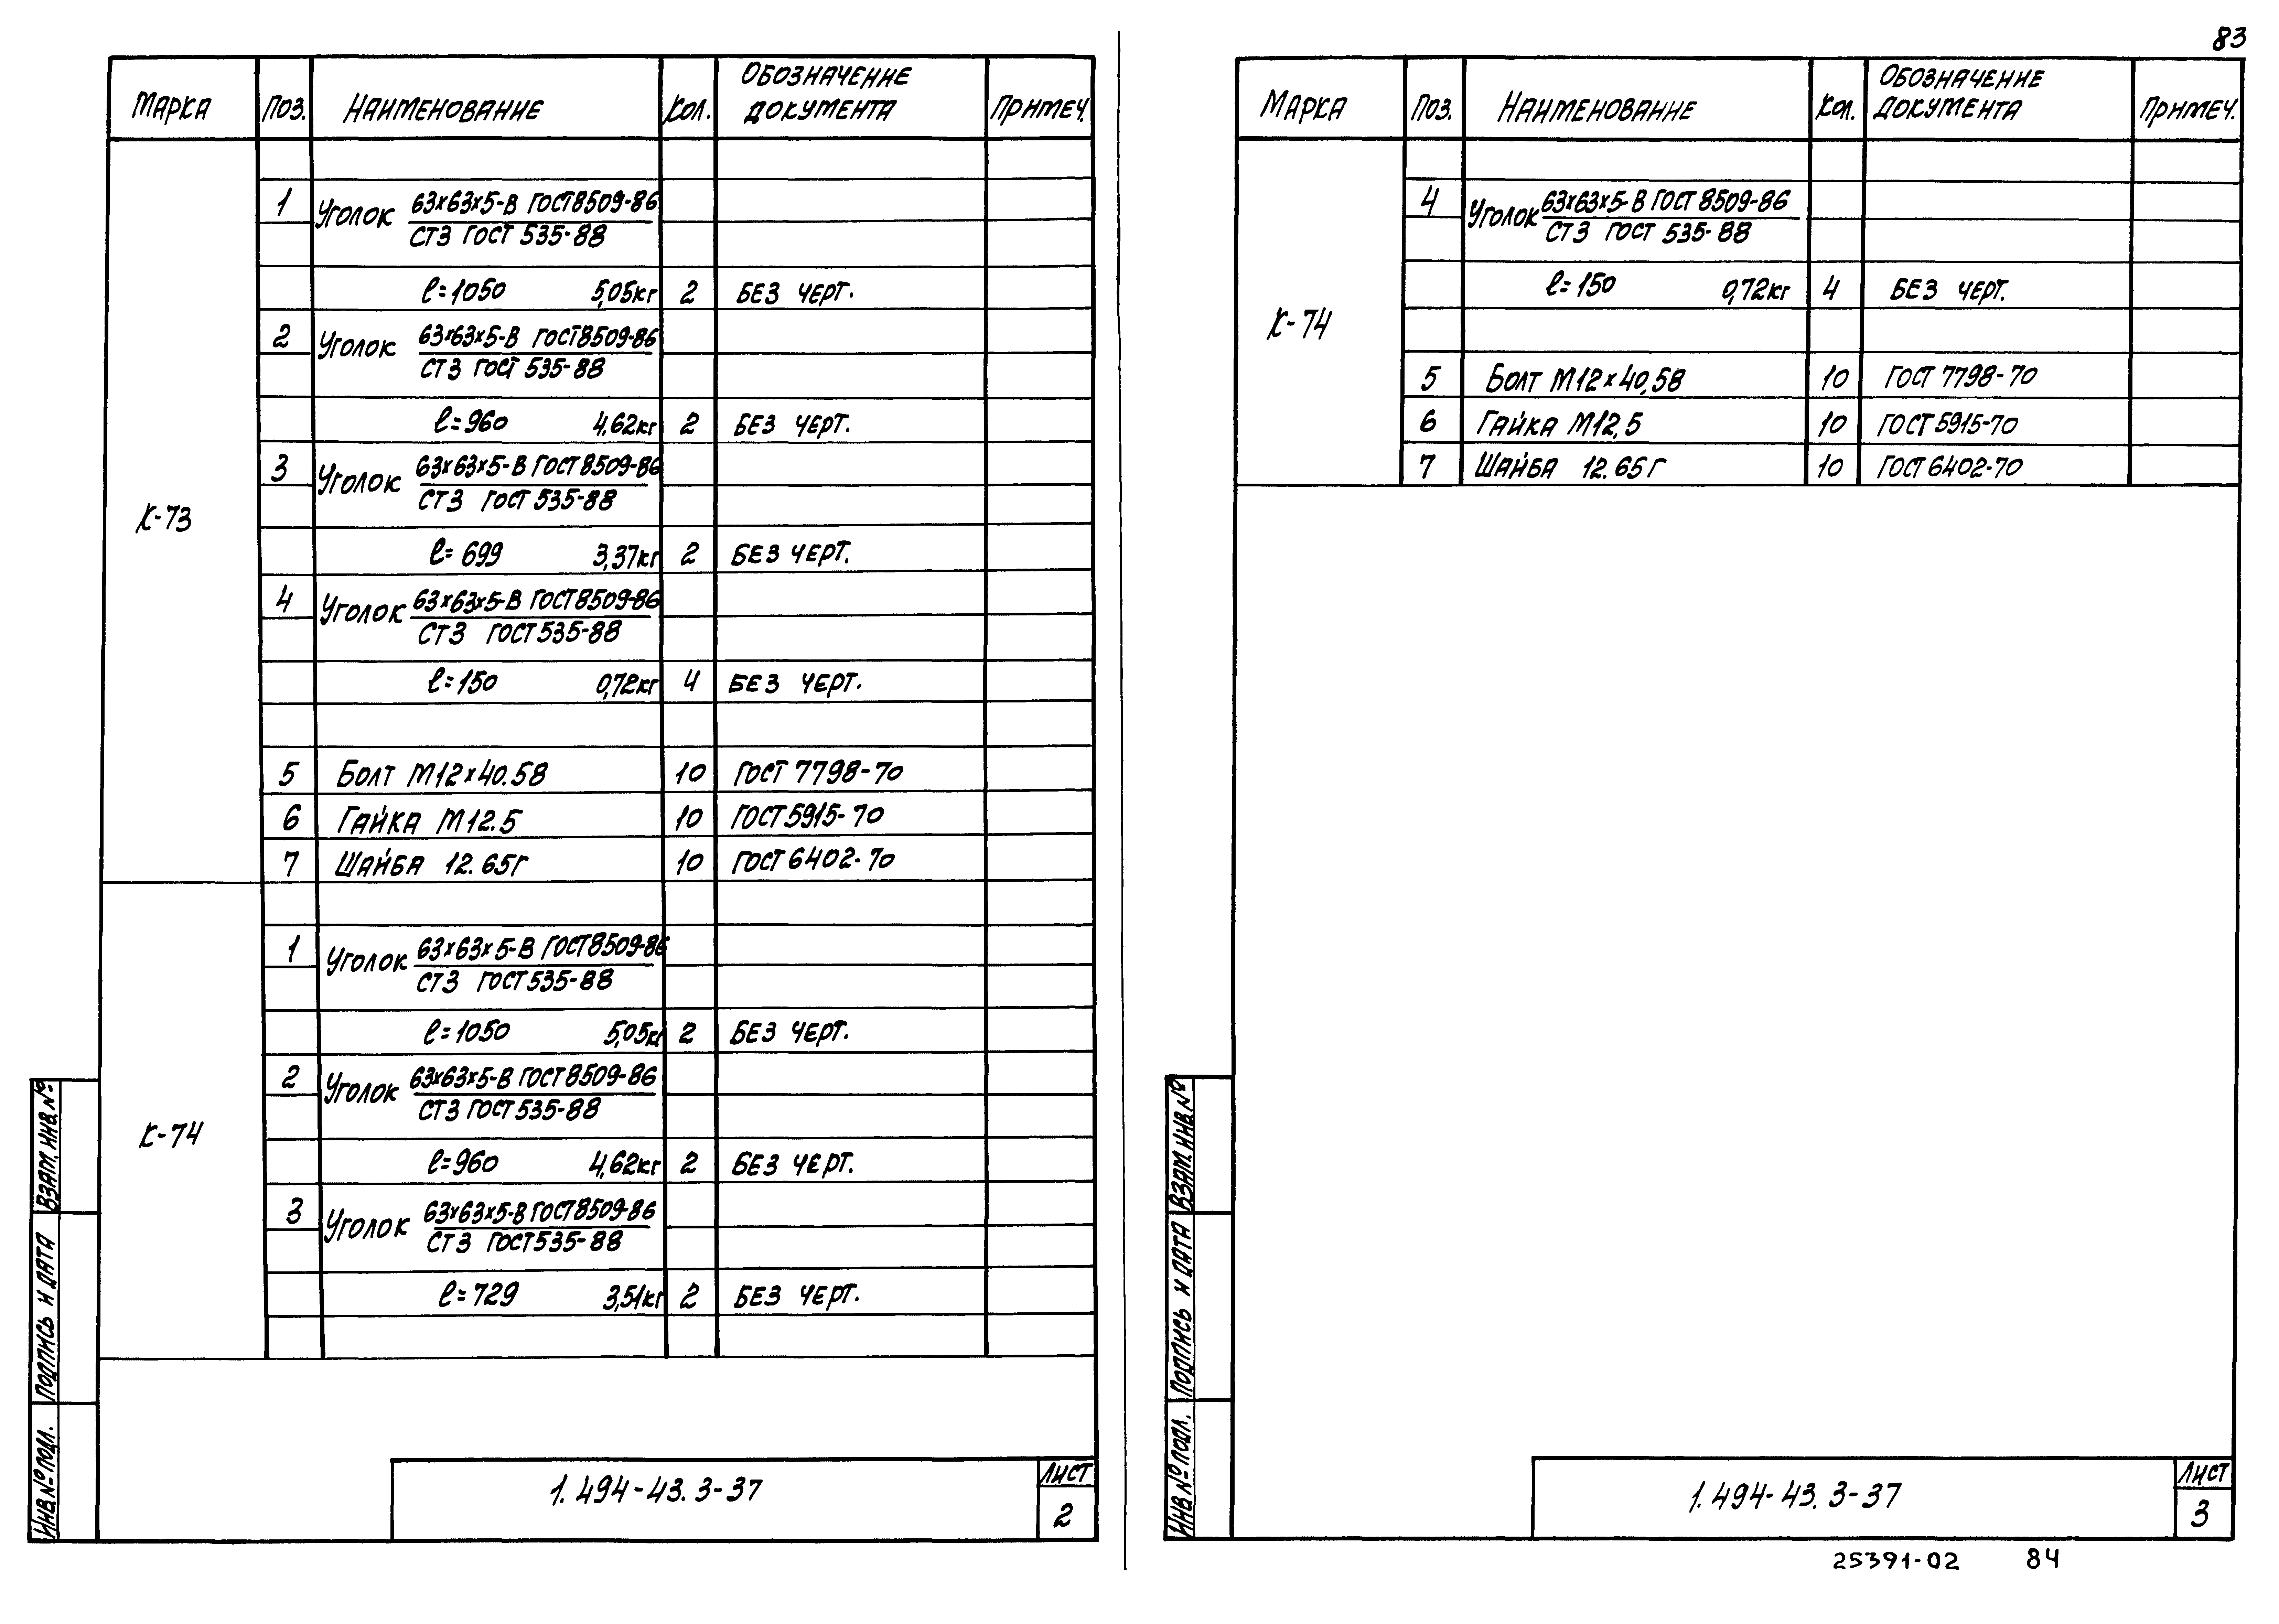 83
МАРКА ПОЗ. НАИМЕНОВАНИЕ КОЛ. ОБОЗНАЧЕНИЕ ДОКУМЕНТА ПРИМЕЧ.
К-73
1 УГОЛОК 63х63х5-В ГОСТ8509-86
СТ3 ГОСТ 535-88
ℓ=1050 5,05кг 2 БЕЗ ЧЕРТ.
2 УГОЛОК 63х63х5-В ГОСТ8509-86
СТ3 ГОСТ 535-88
ℓ=960 4,62кг 2 БЕЗ ЧЕРТ.
3 УГОЛОК 63х63х5-В ГОСТ8509-86
СТ3 ГОСТ 535-88
ℓ=699 3,37кг 2 БЕЗ ЧЕРТ.
4 УГОЛОК 63х63х5-В ГОСТ8509-86
СТ3 ГОСТ535-88
ℓ=150 0,72кг 4 БЕЗ ЧЕРТ.
5 БОЛТ М12х40.58 10 ГОСТ 7798-70
6 ГАЙКА М12.5 10 ГОСТ5915-70
7 ШАЙБА 12.65Г 10 ГОСТ 6402-70
К-74
1 УГОЛОК 63х63х5-В ГОСТ8509-86
СТ3 ГОСТ535-88
ℓ=1050 5,05кг 2 БЕЗ ЧЕРТ.
2 УГОЛОК 63х63х5-В ГОСТ8509-86
СТ3 ГОСТ535-88
ℓ=960 4,62кг 2 БЕЗ ЧЕРТ.
3 УГОЛОК 63х63х5-В ГОСТ8509-86
СТ3 ГОСТ535-88
ℓ=729 3,51кг 2 БЕЗ ЧЕРТ.
ВЗАМ. ИНВ. №
ПОДПИСЬ И ДАТА
ИНВ.№ ПОДЛ.
1.494-43.3-37
ЛИСТ
2
МАРКА ПОЗ. НАИМЕНОВАНИЕ КОЛ. ОБОЗНАЧЕНИЕ ДОКУМЕНТА ПРИМЕЧ.
К-74
4 УГОЛОК 63х63х5-В ГОСТ 8509-86
СТ3 ГОСТ 535-88
ℓ=150 0,72кг 4 БЕЗ ЧЕРТ.
5 БОЛТ М12х40,58 10 ГОСТ 7798-70
6 ГАЙКА М12,5 10 ГОСТ5915-70
7 ШАЙБА 12.65Г 10 ГОСТ6402-70
ВЗАМ. ИНВ. №
ПОДПИСЬ И ДАТА
ИНВ.№ ПОДЛ.
1.494-43.3-37
ЛИСТ
3
25391-02 84